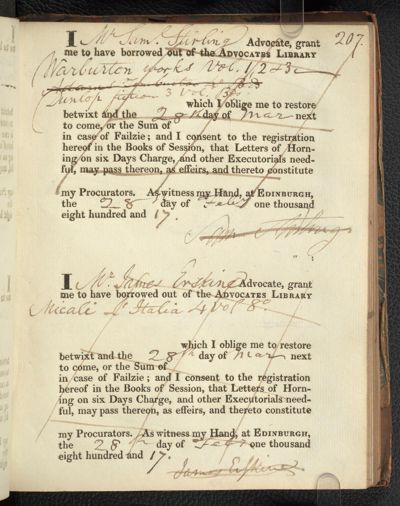 207.
I Mr. Saml. Stirling Advocate, grant
me to have borrowed out of the ADVOCATES LIBRARY
Warburton works Vol. 1, 2 & 3
Dunlop fiction 3 Vol.
which I oblige me to restore
betwixt and the 28th day of Mar next
to come, or the Sum of
in case of Failzie; and I consent to the registration
hereof in the Books of Session, that Letters of Horn-
ing on six Days Charge, and other Executorials need-
ful, may pass thereon, as effeirs, and thereto constitute
my Procurators. As witness my Hand, at EDINBURGH,
the 28 day of Feby one thousand
eight hundred and 17.
I Mr. James Erskine Advocate, grant
me to have borrowed out of the ADVOCATES LIBRARY
Micali L'Italia 4 Vol 8o.
which I oblige me to restore
betwixt and the 28th day of Mar next
to come, or the Sum of
in case of Failzie; and I consent to the registration
hereof in the Books of Session, that Letters of Horn-
ing on six Days Charge, and other Executorials need-
ful, may pass thereon, as effeirs, and thereto constitute
my Procurators. As witness my Hand, at EDINBURGH,
the 28th day of Feby one thousand
eight hundred and 17.
James Erskine